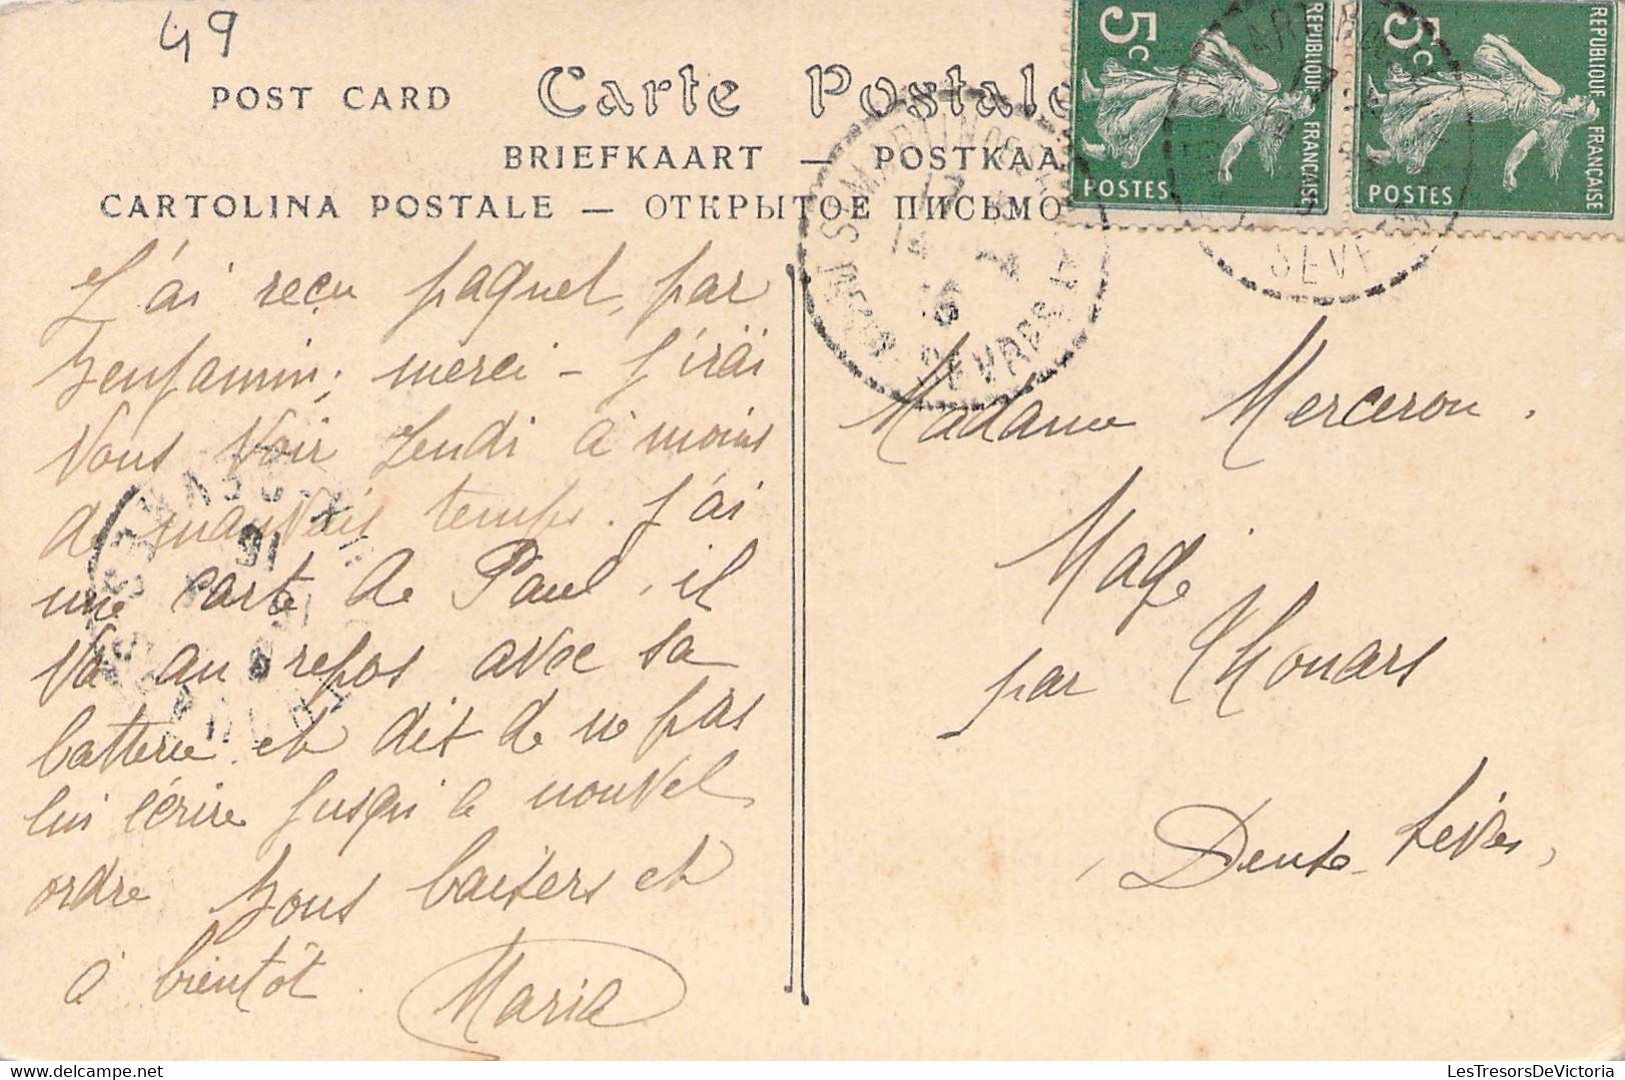 49
POST CARD Carte Postale
BRIEFKAART — POSTKAA
CARTOLINA POSTALE — ОТКРЫТОЕ ПИСЬМО
5c
REPUBLIQUE FRANÇAISE
POSTES
5c
REPUBLIQUE FRANÇAISE
POSTES
ST MARTIN
SEVRES
17
14 - 4
16
SEV
J'ai reçu paquet, par
Benjamin; merci - J'irai
Vous Voir Jeudi à moins
de mauvais temps. J'ai
une carte de Paul, il
Va au repos avec sa
batterie et dit de ne pas
lui écrire jusqu'à nouvel
ordre Bons baisers et
à bientôt. Maria
Madame Merceron.
Magé
par Thouars
Deux-Sèvres,
LesTresorsDeVictoria